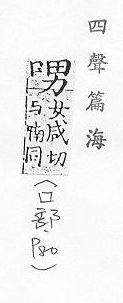 四聲篇海
㽖女咸切
与喃同
(口部.P80)